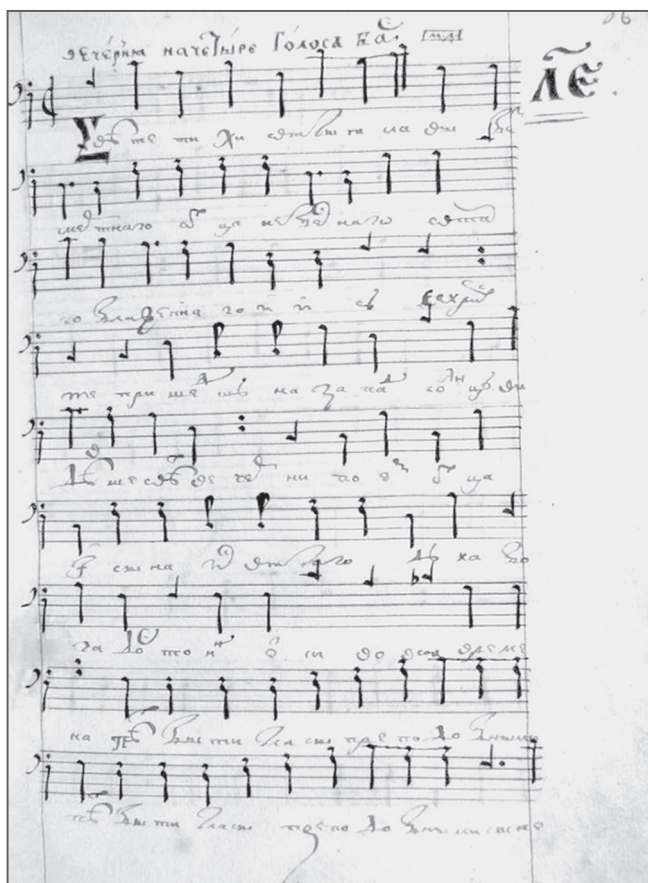 вечерня на четыре голоса ба҃с [мд]
л҃е
Свѣте ти хи святы я сла вы бе
смертнаго о҃ца небеснаго свята
го блаженна го и и съ се хрис
те при ше шъ на запа со лнцъ ви
дѣ ше свѣ ве че ни пое о҃ца
сына и святаго дъ ха бо
га до сто н е си во вся време
на пѣ быти гласы препо до бными
пѣ быти гласы препо до бными сыне